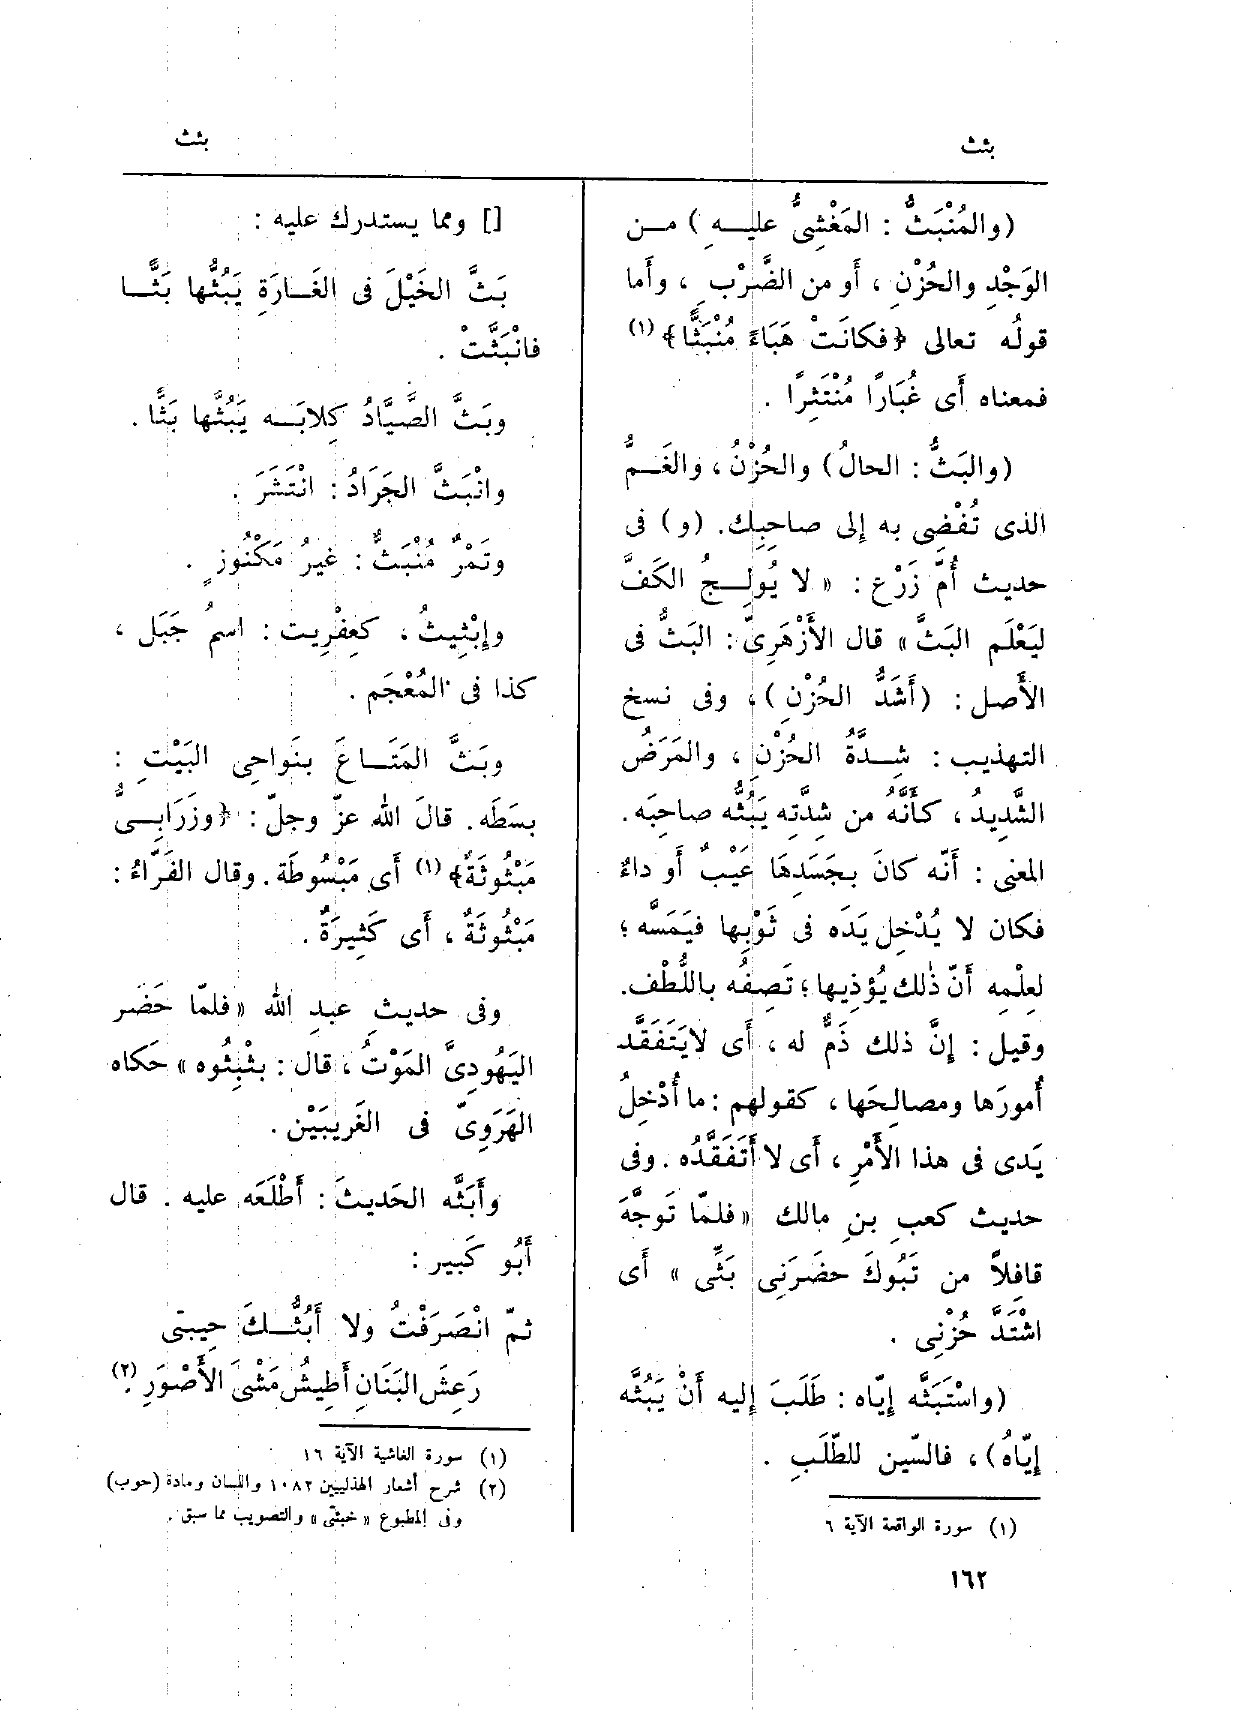 بثث
بثث
(والمُنْبَثُّ : المَغْشِىُّ عليـــهِ) مــن
الوَجْدِ والحُزْنِ ، أَو من الضَّرْبِ ، وأَما
قولُه تعالى ﴿فكانَتْ هَبَاءً مُنْبَثًّا﴾ (١)
فمعناه أَى غُبَارًا مُنْتَثِرًا .
(والبَثُّ : الحالُ) والحُزْنُ ، والغَــمُّ
الذى تُفْضِى به إِلى صاحِبِك. (و) فى
حديث أُمِّ زَرْع : « لا يُولِــجُ الكَفَّ
لِيَعْلَم البَثَّ » قال الأَزْهَرِىّ : البَثُّ فى
الأَصل : (أَشَدُّ الحُزْنِ) ، وفى نسخ
التهذيب : شِــدَّةُ الحُزْنِ ، والمَرَضُ
الشَّدِيدُ ، كأَنَّهُ من شِدَّتِه يَبُثُّه صاحبَه.
المعنى : أَنَّه كانَ بجَسَدِهَا عَيْبٌ أَو داءٌ
فكان لا يُدْخِل يَدَه فى ثَوْبِها فيَمَسّه ؛
لعِلْمِه أَنّ ذٰلك يُؤذِيها ؛ تَصِفُه باللُّطْف.
وقيل : إِنَّ ذلك ذَمٌّ له ، أَى لايَتَفَقَّد
أُمورَها ومصالِحَها ، كقولهم : ما أُدْخِلُ
يَدى فى هذا الأَمْرِ ، أَى لا أَتَفَقَّدُه . وفى
حديث كعبِ بنِ مالك « فلمّا تَوجَّهَ
قافِلاً من تَبُوكَ حضَرَنِى بَثِّى » أَى
اشْتَدَّ حُزْنِى .
(واسْتَبَثَّه إِيّاه : طَلَبَ إِليه أَنْ يَبُثَّه
إِيّاهُ) ، فالسّين للطّلَبِ .
(١) سورة الواقعة الآية ٦
١٦٢
[] ومما يستدرك عليه :
بَثَّ الخَيْلَ فى الغَــارَةِ يَبُثُّها بَثًّــا
فانْبَثَّتْ .
وبَثَّ الصَّيَّادُ كِلابَــه يَبُثُّها بَثًّا .
وانْبَثَّ الجَرَادُ : انْتَشَرَ .
وتَمْرٌ مُنْبَثٌّ : غيرُ مَكْنُوزٍ .
وإِبْثِيثُ ، كعِفْرِيت : اسمُ جَبَل ،
كذا فى المُعْجَم .
وبَثَّ المَتَــاعَ بنَواحِى البَيْتِ :
بسَطَه. قالَ الله عزّ وجلّ : ﴿وزَرَابِــىُّ
مَبْثُوثَةٌ﴾ (١) أَى مَبْسُوطَة . وقال الفَرَّاءُ :
مَبْثُوثَةٌ ، أَى كَثِيرَةٌ .
وفى حديثِ عبدِ الله « فلمّا حَضَرَ
اليَهُودِىَّ المَوْتُ ، قال : بثْبِثُوه » حَكاه
الهَرَوِىّ فى الغَرِيبَيْن .
وأَبَثَّه الحَديثَ : أَطْلَعَه عليه . قال
أَبُو كَبِير :
ثمّ انْصَرَفْتُ ولا أَبُثُّــكَ حِيبتى
رَعِشَ البَنَانِ أَطِيشُ مَشْىَ الأَصْوَرِ (٢)
(١) سورة الغاشية الآية ١٦
(٢) شرح أشعار الهذليين ١٠٨٢ واللسان ومادة (حوب)
وفى المطبوع « خبثّى » والتصويب مما سبق .